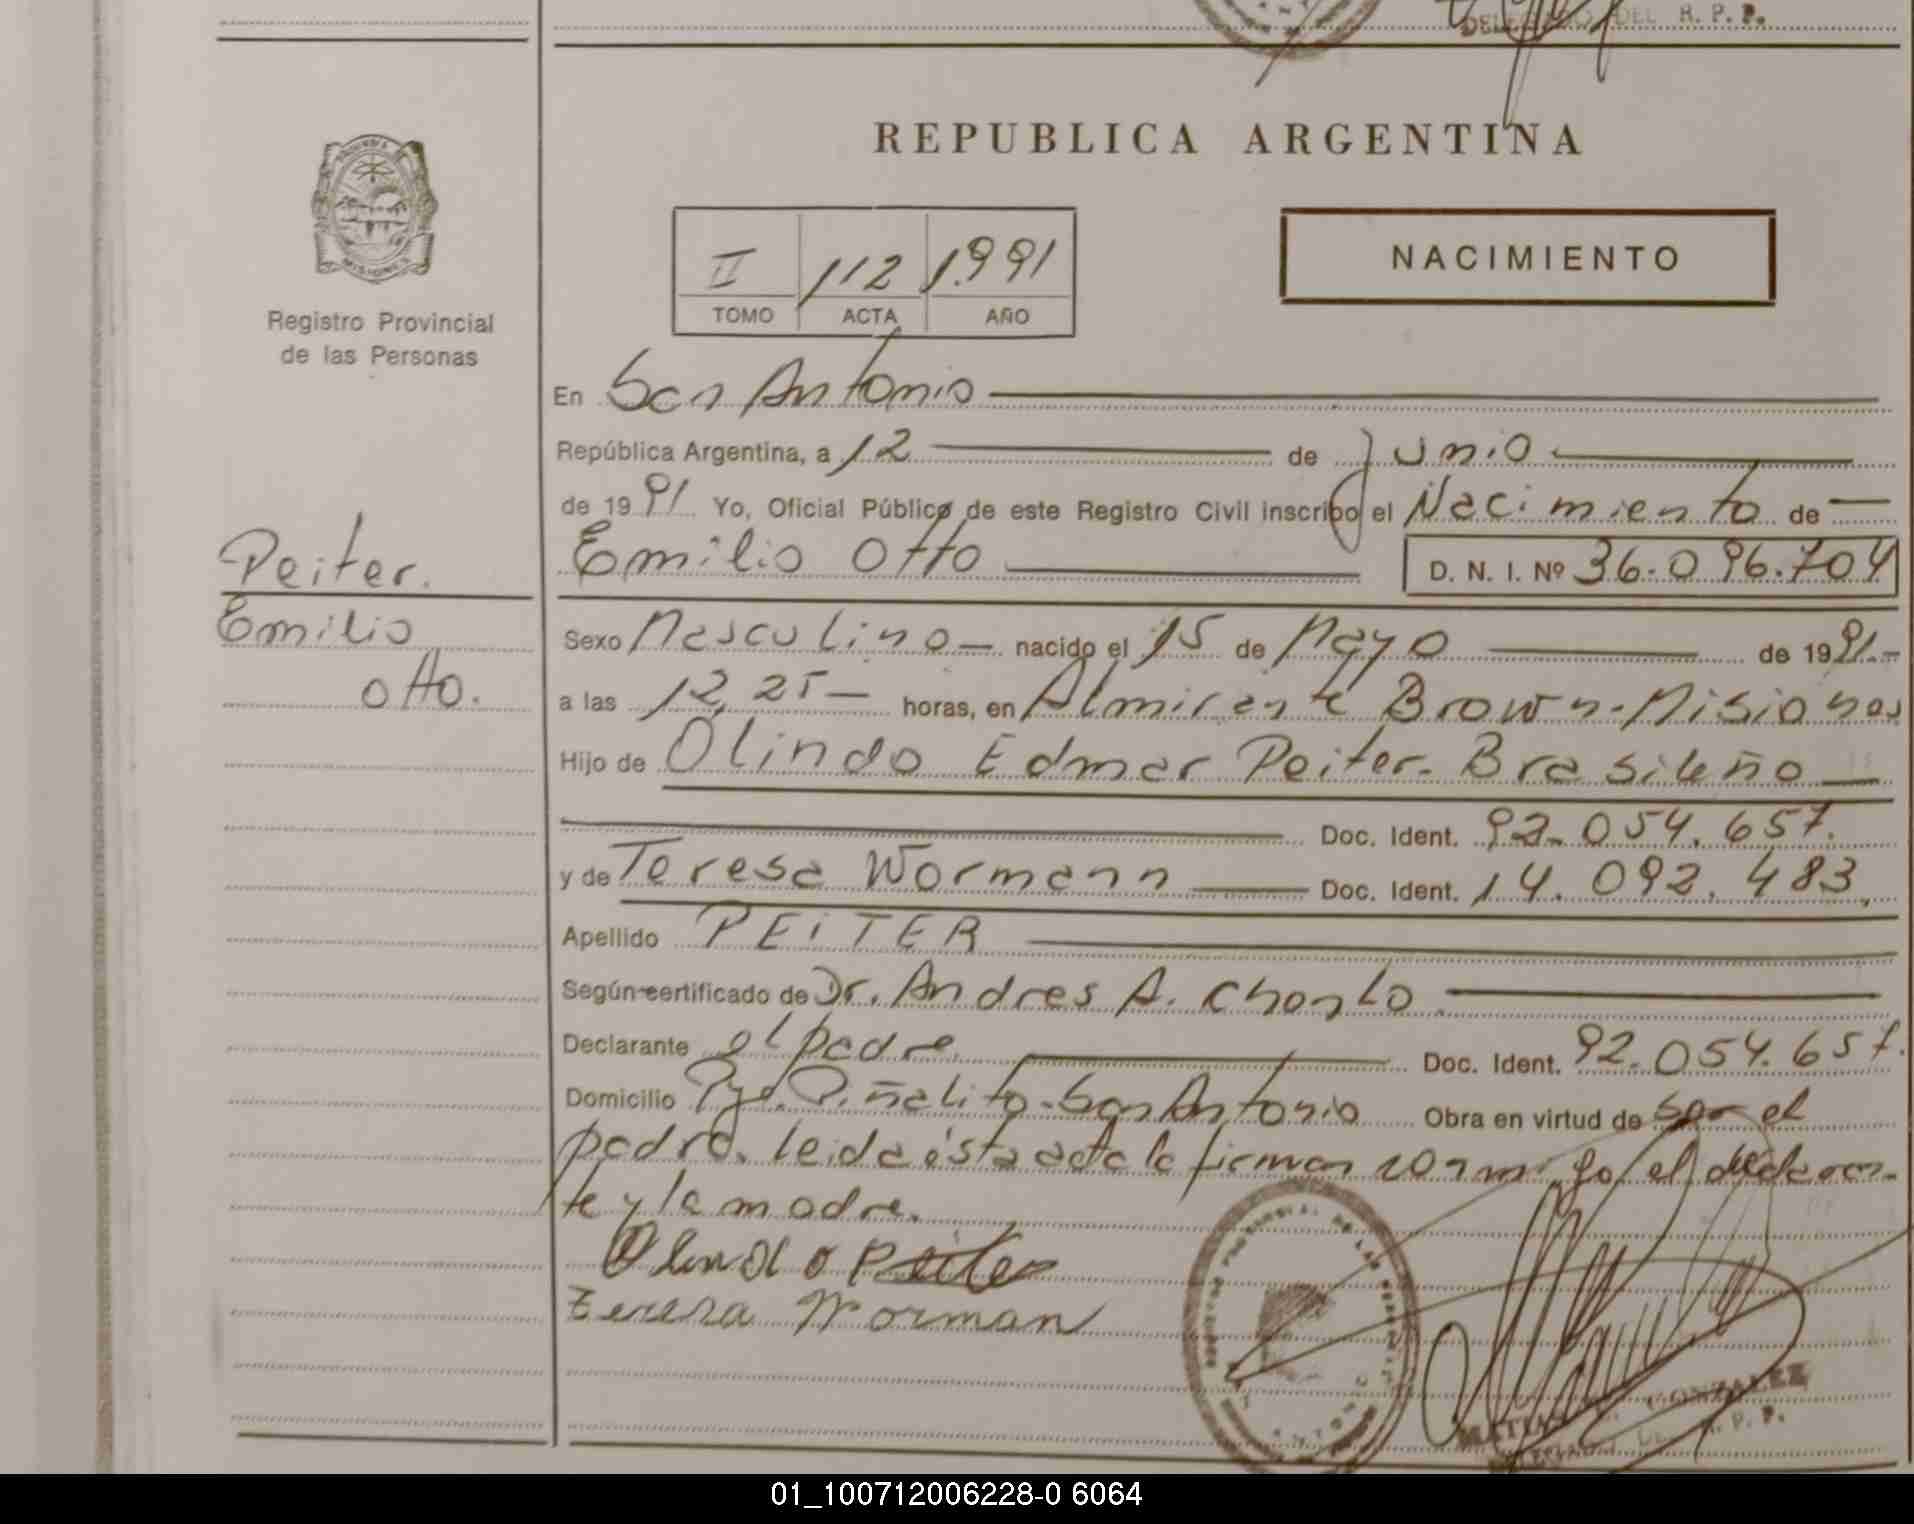 DELEGADO DEL R. P. P.
REPUBLICA ARGENTINA
PROVINCIA DE
MISIONES
Registro Provincial
de las Personas
II 112 1.991
TOMO ACTA AÑO
NACIMIENTO
En San Antonio
República Argentina, a 12 de Junio
de 1991 Yo, Oficial Público de este Registro Civil inscribo el Nacimiento de
Peiter.
Emilio Otto
Emilio Otto D. N. I. Nº 36.096.704
Sexo Masculino nacido el 15 de Mayo de 1991.
a las 12,25 horas, en Almirante Brown-Misiones
Hijo de Olindo Edmar Peiter. Brasileño
Doc. Ident. 92.054.657.
y de Teresa Wormann Doc. Ident. 14.092.483,
Apellido PEiTER
Según certificado de Dr. Andres A.
Declarante el padre Doc. Ident. 92.054.657.
Domicilio Pje. Piñalito-San Antonio Obra en virtud de ser el
padre. leida ésta acta la firman conmigo el declaran-
te y la madre.
Olindo Peiter
Teresa Worman
GONZALEZ
DELEGADO DEL R. P. P.
01_100712006228-0 6064